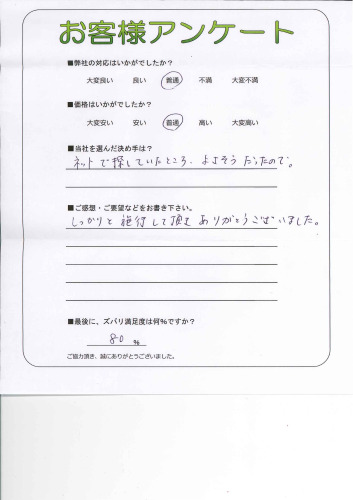 お客様アンケート
■弊社の対応はいかがでしたか?
大変良い 良い 普通 不満 大変不満
■価格はいかがでしたか?
大変安い 安い 普通 高い 大変高い
■当社を選んだ決め手は?
ネットで探していたところ、よさそうだったので。
■ご感想・ご要望などをお書き下さい。
しっかりと施行して頂きありがとうございました。
■最後に、ズバリ満足度は何%ですか?
80 %
ご協力頂き、誠にありがとうございました。